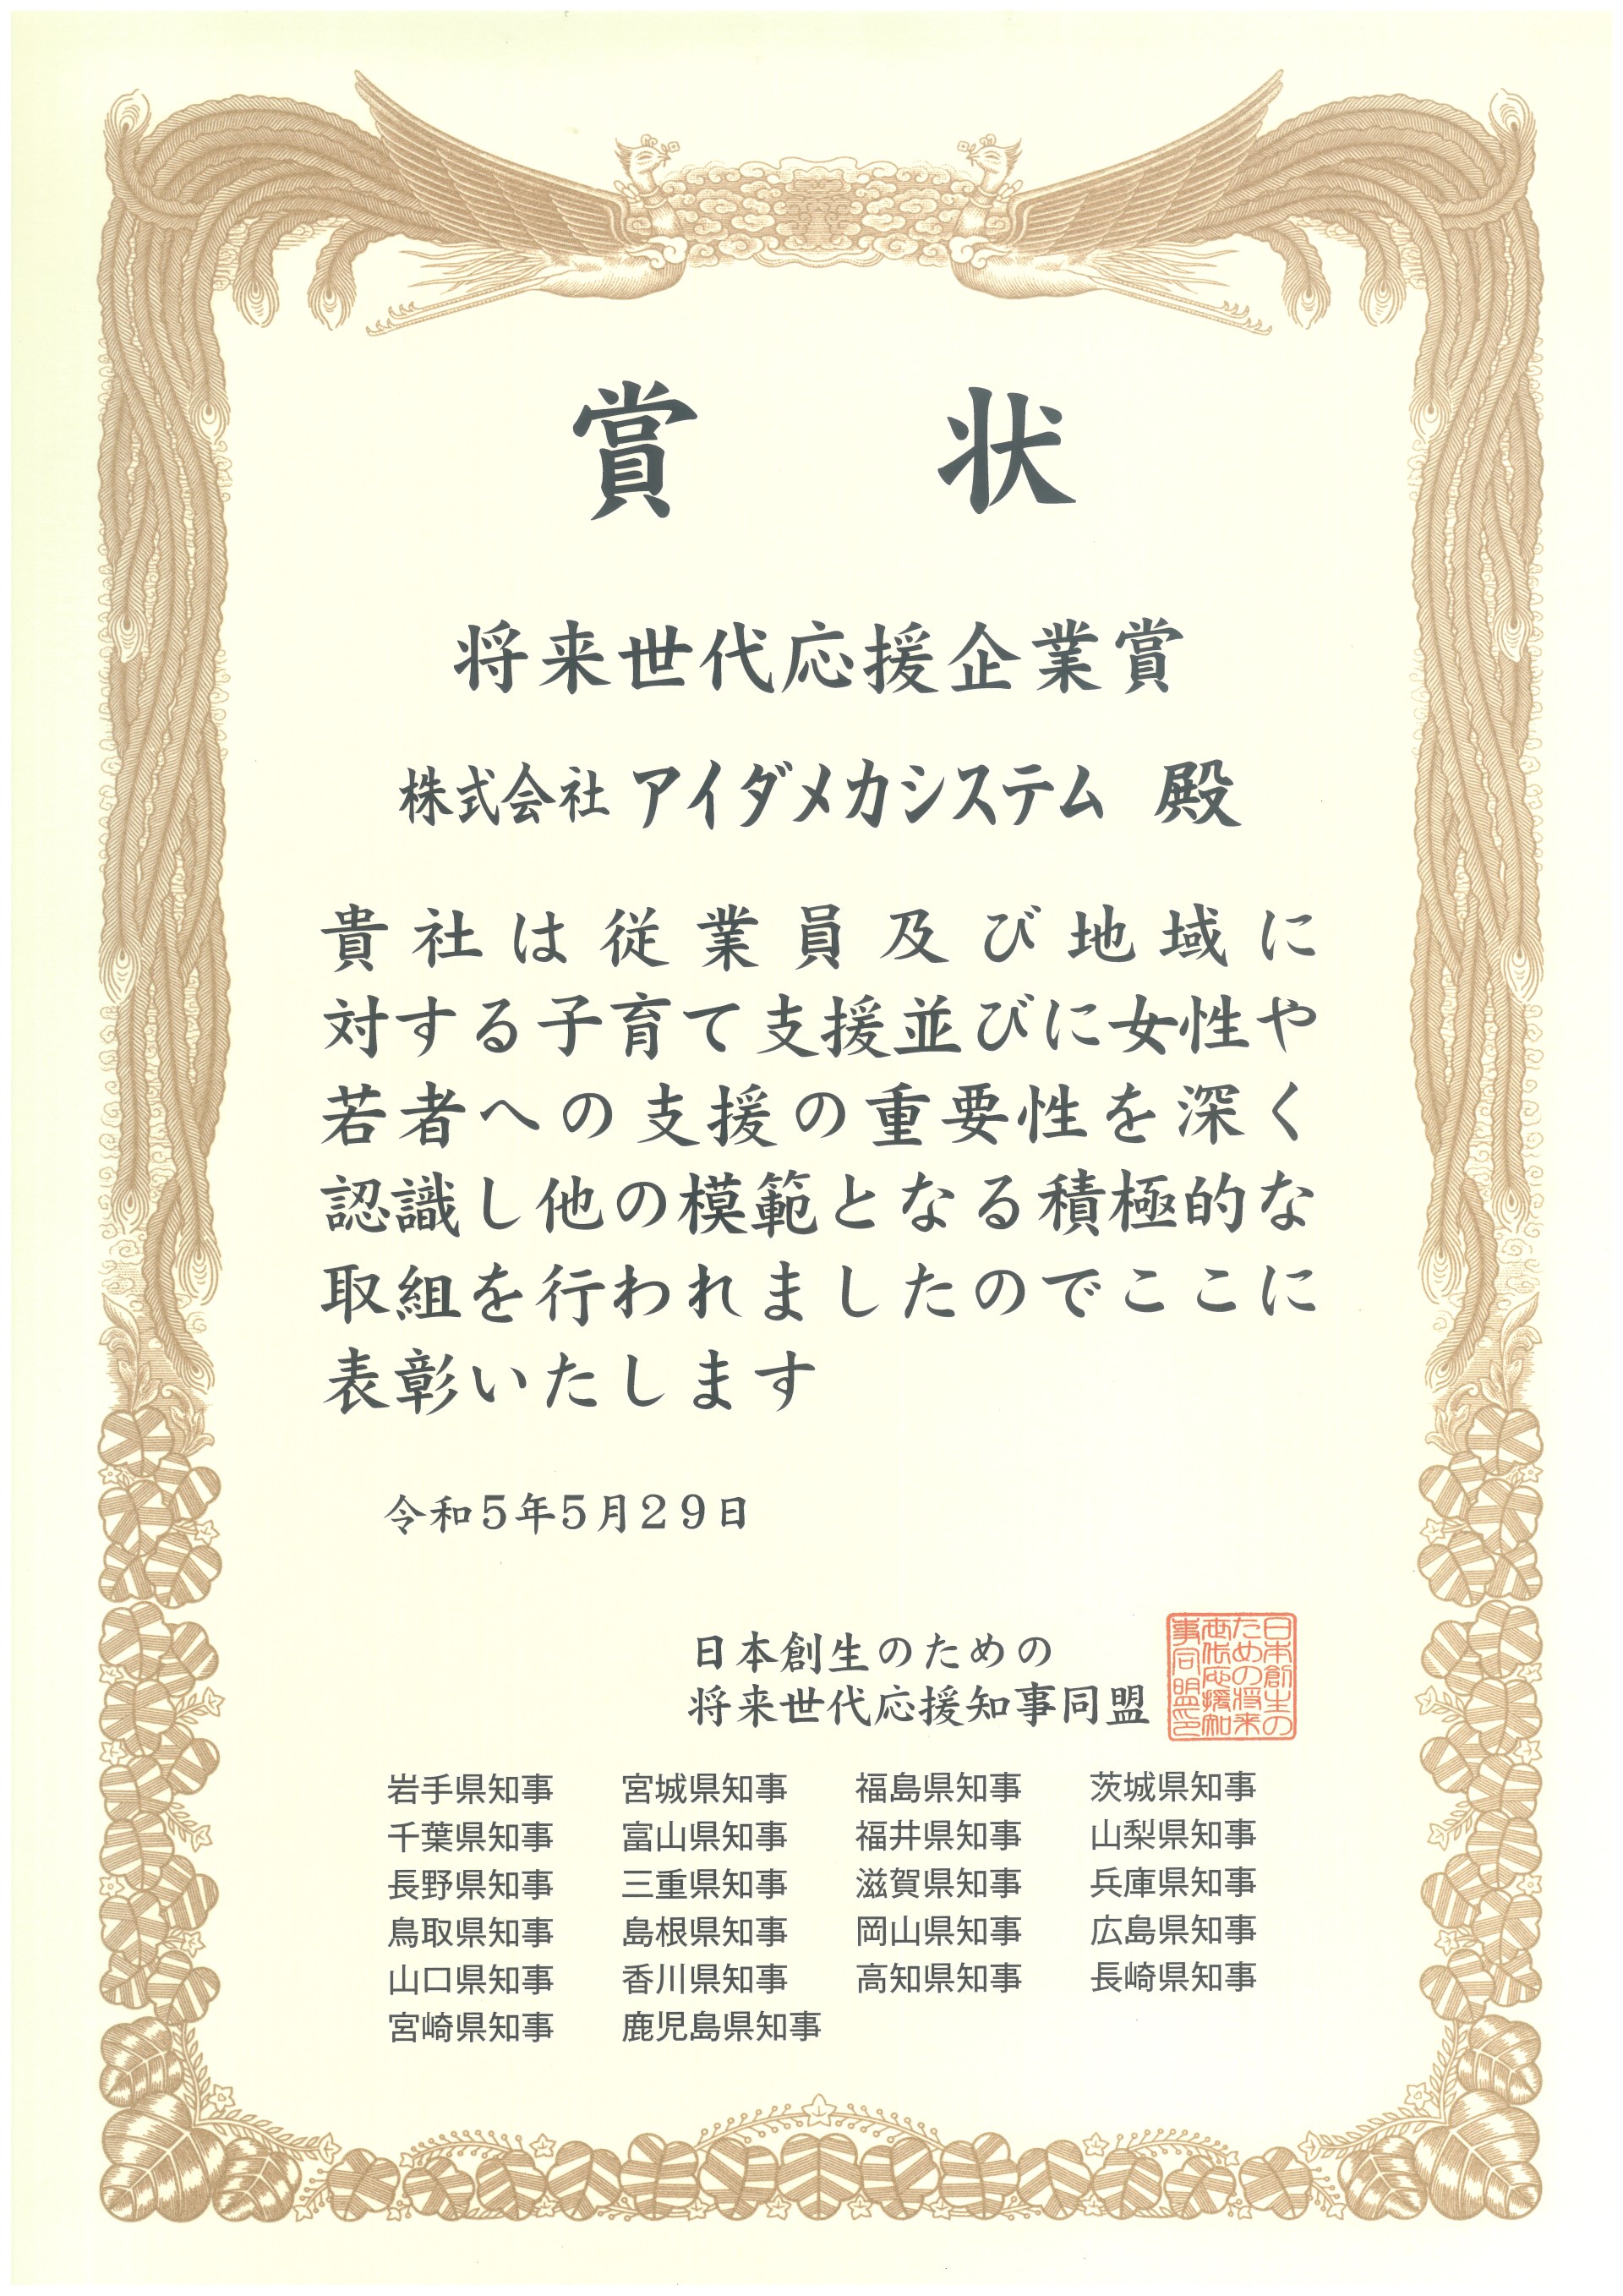 賞 状
将来世代応援企業賞
株式会社アイダメカシステム 殿
貴社は従業員及び地域に
対する子育て支援並びに女性や
若者への支援の重要性を深く
認識し他の模範となる積極的な
取組を行われましたのでここに
表彰いたします
令和５年５月２９日
日本創生のための
将来世代応援知事同盟
日本創生の
ための将来
世代応援知
事同盟印
岩手県知事 宮城県知事 福島県知事 茨城県知事
千葉県知事 富山県知事 福井県知事 山梨県知事
長野県知事 三重県知事 滋賀県知事 兵庫県知事
鳥取県知事 島根県知事 岡山県知事 広島県知事
山口県知事 香川県知事 高知県知事 長崎県知事
宮崎県知事 鹿児島県知事